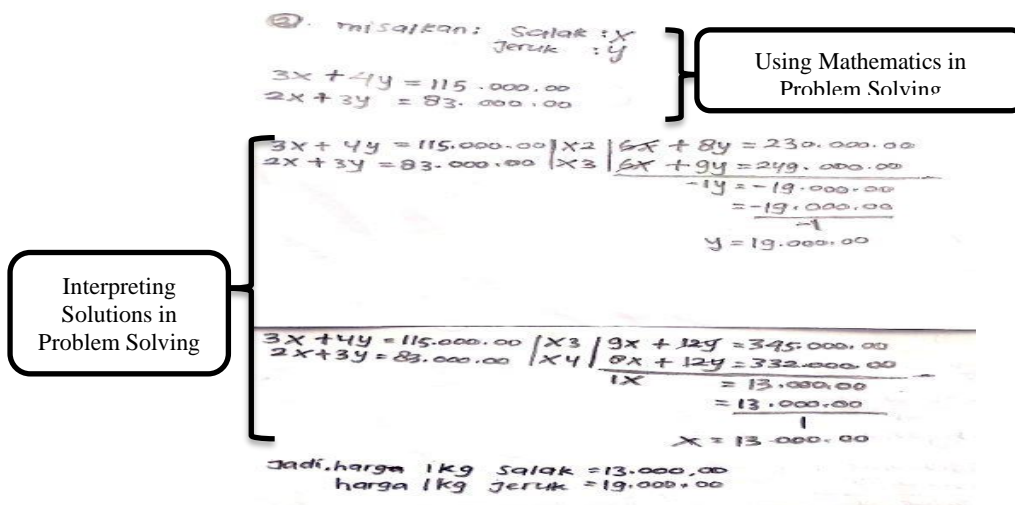 ②. misalkan: Salak : x
Jeruk : y
Using Mathematics in
Problem Solving
3x + 4y = 115.000.00
2x + 3y = 83.000.00
3x + 4y = 115.000.00 | x2 | 6x + 8y = 230.000.00
2x + 3y = 83.000.00 | x3 | 6x + 9y = 249.000.00
-1y = -19.000.00
= -19.000.00
-1
y = 19.000.00
Interpreting
Solutions in
Problem Solving
3x + 4y = 115.000.00 | x3 | 9x + 12y = 345.000.00
2x + 3y = 83.000.00 | x4 | 8x + 12y = 332.000.00
1x = 13.000.00
= 13.000.00
1
x = 13.000.00
Jadi, harga 1kg salak = 13.000,00
harga 1kg jeruk = 19.000,00